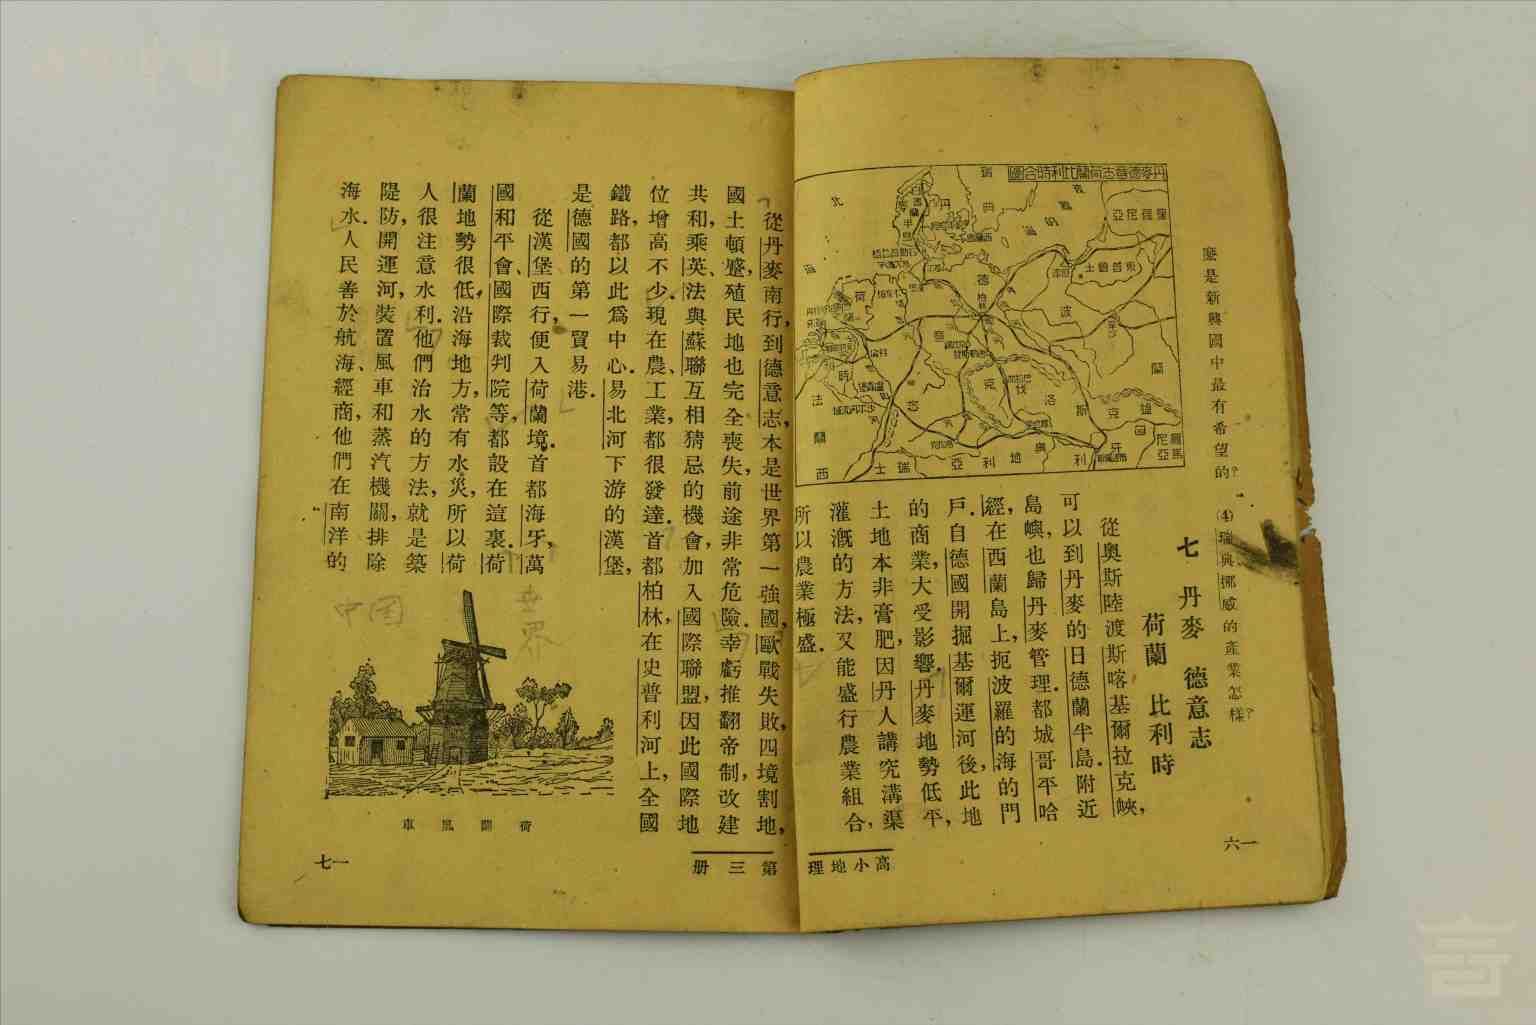 麽是新興國中最有希望的？ ⑷瑞典挪威的產業怎樣？
七 丹麥 德意志
荷蘭 比利時
從奧斯陸渡斯喀基爾拉克峽，
可以到丹麥的日德蘭半島．附近
島嶼，也歸丹麥管理．都城哥平哈
經，在西蘭島上，扼波羅的海的門
戶．自德國開掘基爾運河後，此地
的商業，大受影響．丹麥地勢低平，
土地本非膏肥，因丹人講究溝渠
灌漑的方法，又能盛行農業組合，
所以農業極盛．
丹麥德意志荷蘭比利時合圖
高小地理
一六
從丹麥南行，到德意志，本是世界第一強國，歐戰失敗，四境割地，
國土頓蹙，殖民地也完全喪失，前途非常危險．幸虧推翻帝制，改建
共和，乘英、法與蘇聯互相猜忌的機會，加入國際聯盟，因此國際地
位增高不少．現在農、工業，都很發達．首都柏林，在史普利河上，全國
鐵路，都以此爲中心．易北河下游的漢堡，
是德國的第一貿易港．
從漢堡西行，便入荷蘭境．首都海牙，萬
國和平會、國際裁判院等，都設在這裏．荷
蘭地勢很低，沿海地方，常有水災，所以荷
人很注意水利．他們治水的方法，就是築
隄防，開運河，裝置風車和蒸汽機關，排除
海水．人民善於航海、經商，他們在南洋的
中国
世界
荷蘭風車
第三册
一七